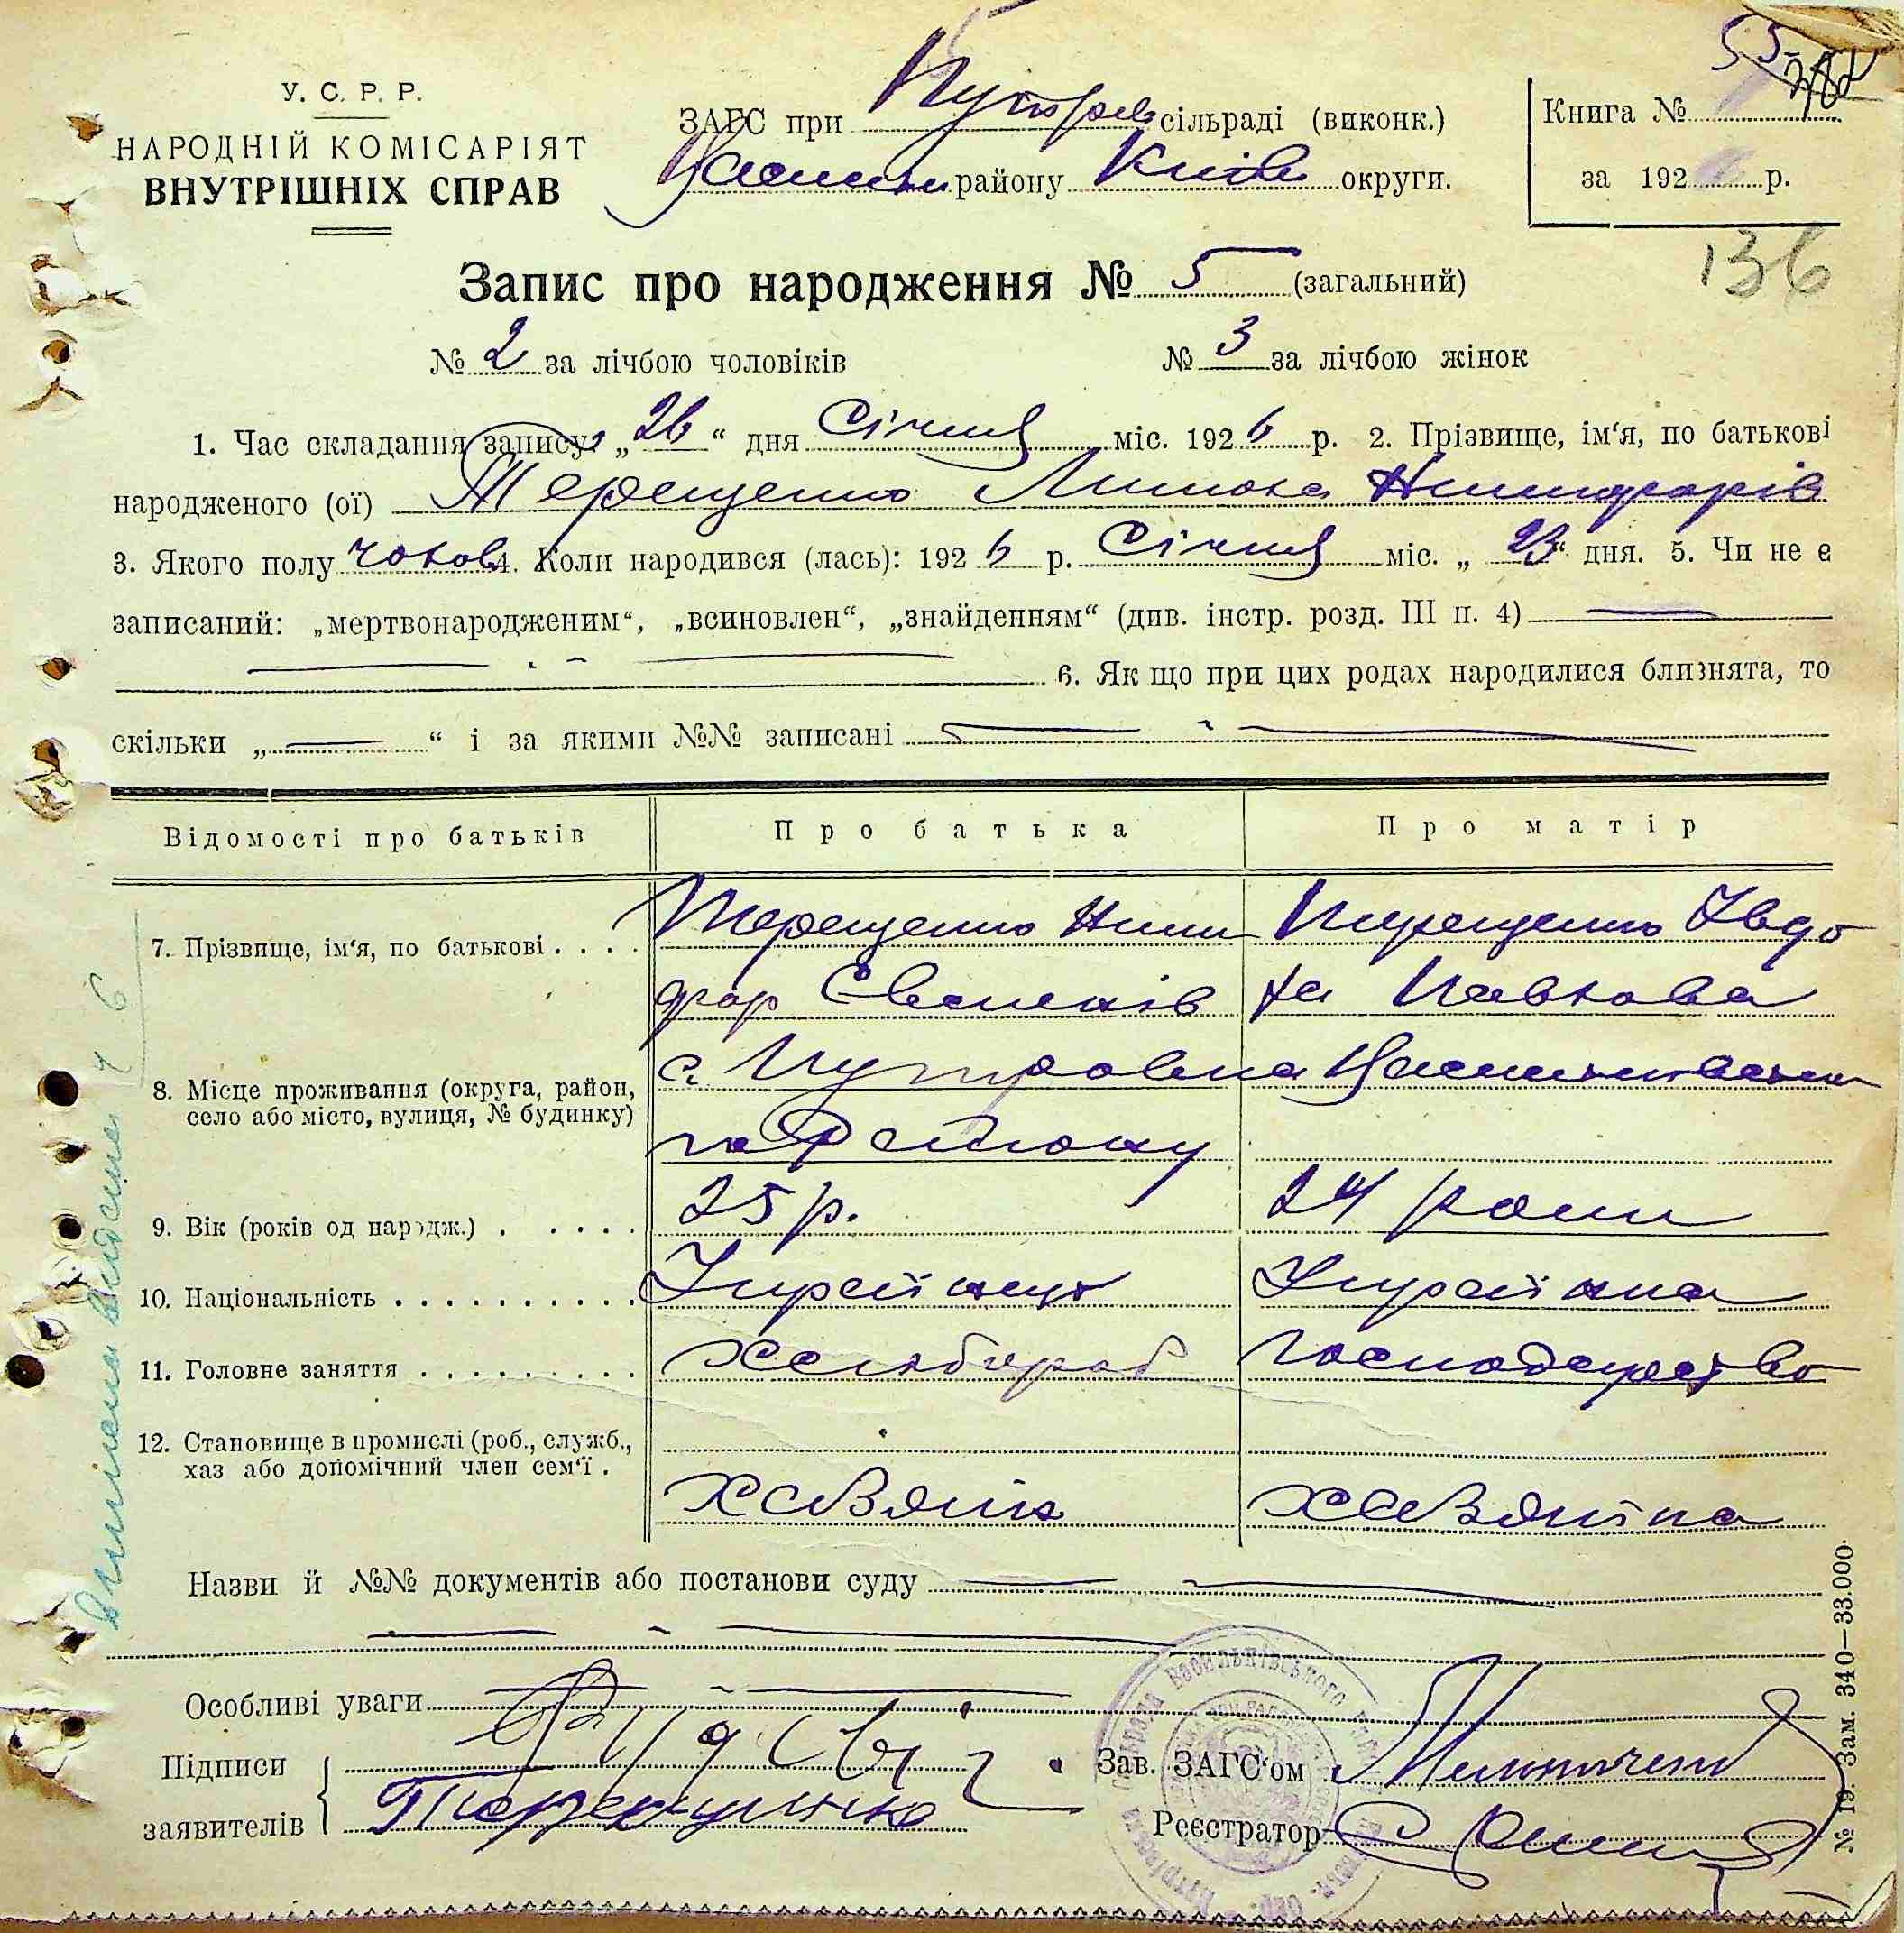 55
У. С. Р. Р.
НАРОДНІЙ КОМІСАРІЯТ
ВНУТРІШНІХ СПРАВ
ЗАГС при Путрів сільраді (виконк.)
району Київ округи.
Книга №
за 192 р.
136
Запис про народження № 5 (загальний)
№ 2 за лічбою чоловіків № 3 за лічбою жінок
1. Час складання запису: „26“ дня Січня міс. 1926 р. 2. Прізвище, ім‘я, по батькові
народженого (ої) Терещенко Микола Никифорів
3. Якого полу чолов 4. Коли народився (лась): 1926 р. Січня міс. „23“ дня. 5. Чи не є
записаний: „мертвонародженим“, „всиновлен“, „знайденням“ (див. інстр. розд. III п. 4) —
6. Як що при цих родах народилися близнята, то
скільки „—“ і за якими №№ записані — „ —
Відомості про батьків Про батька Про матір
7. Прізвище, ім‘я, по батькові . . . . Терещенко Ники Терещенко Явдо
фор ха Павлова
8. Місце проживання (округа, район, с. Путровка
село або місто, вулиця, № будинку) Району
9. Вік (років од народж.) . . . . . 25 р. 24 роки
10. Національність . . . . . . . . . . Українець Українка
11. Головне заняття . . . . . . . . . Хлібороб господарство
12. Становище в промислі (роб., служб.,
хаз або допомічний член сем‘ї . Хазяїн хазяйка
Назви й №№ документів або постанови суду — „ —
Особливі уваги — „ —
Підписи
заявителів Терещенко
Зав. ЗАГС‘ом
Реєстратор
Васильківського
№ 19. Зам. 340—33.000.